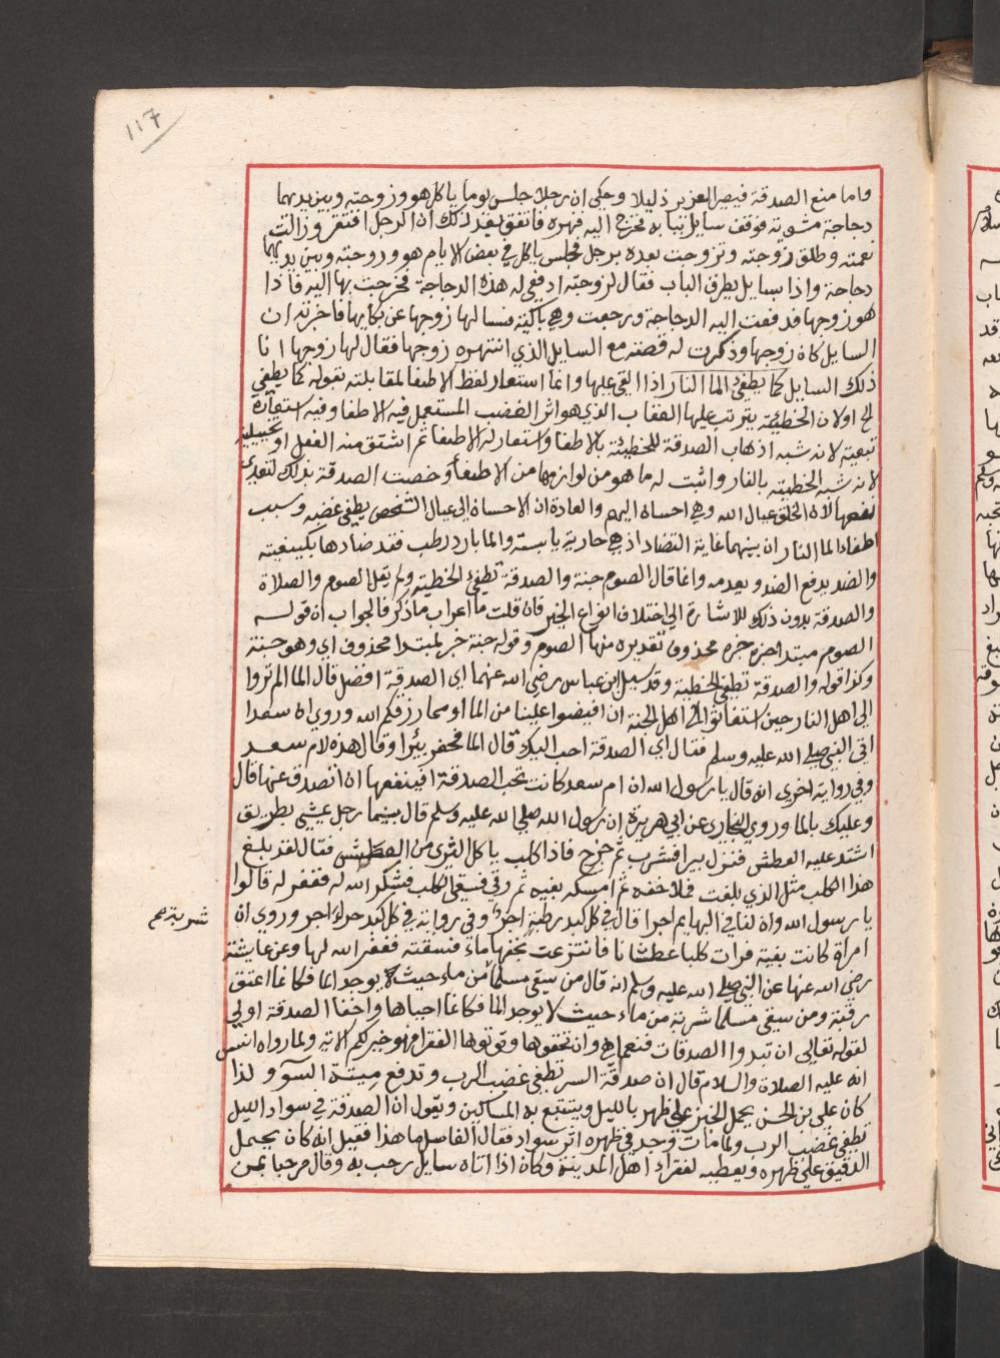 117
واما منع الصدقة فيصير العزيز ذليلا وحكى ان رجلا جلس يوما ياكل هو وزوجته وبين يديهما
دجاجة مشوية فوقف سايل ببابه فخرج اليه فنهره فاتفق بعد ذلك ان الرجل افتقر وزالت
نعمته وطلق زوجته وتزوجت بعده برجل فجلس ياكل في بعض الايام هو وزوجته وبين يديهما
دجاجة واذا بسايل يطرق الباب فقال لزوجته ادفعي له هذه الدجاجة فخرجت بها اليه فاذا
هو زوجها فدفعت اليه الدجاجة ورجعت وهي باكية فسالها زوجها عن بكايها فاخبرته ان
السايل كان زوجها وذكرت له قصته مع السايل الذي انتهره زوجها فقال لها زوجها انا
ذلك السايل كما يطفئ الما النار اذا القي عليها وانما استعار لفظ الاطفا لمقابلته بقوله كما يطفي
الخ او لان الخطيئة يترتب عليها العقاب الذي هو اثر الغضب المستعمل فيه الاطفا وفيه استعارة
تبعية لانه شبه اذهاب الصدقة للخطيئة بالاطفا واستعار له الاطفا ثم اشتق منه الفعل او تخييلية
لانه شبه الخطيئة بالنار واثبت له ما هو من لوازمها من الاطفا وخصت الصدقة بذلك لتعدي
نفعها لان الخلق عيال الله وهي احسان اليهم والعادة ان الاحسان الى عيال الشخص يطفي غضبه وسبب
اطفاء الما النار ان بينهما غاية التضاد اذ هي حارة يابسة والما بارد رطب فقد ضادها بكيفيته
والضد يدفع الضد ويعدمه وانما قال الصوم جنة والصدقة تطفئ الخطيئة ولم يقل الصوم والصلاة
والصدقة بدون ذلك للاشارة الى اختلاف انواع الخير فان قلت ما اعراب ما ذكر فالجواب ان قوله
الصوم مبتدا خبره محذوف تقديره منها الصوم وقوله جنة خبر لمبتدا محذوف اي وهو جنة
وكذا قوله والصدقة تطفئ الخطيئة وقد سيل ابن عباس رضي الله عنهما اي الصدقة افضل قال الما الم تروا
الى اهل النار حين استغاثوا الى اهل الجنة ان افيضوا علينا من الما او مما رزقكم الله وروي ان سعدا
اتى النبي صلى الله عليه وسلم فقال اي الصدقة احب اليك قال الما فحفر بيرا وقال هذه لام سعد
وفي رواية اخرى انه قال يا رسول الله ان ام سعد كانت تحب الصدقة افينفعها ان اتصدق عنها قال
وعليك بالما وروى البخاري عن ابي هريرة ان رسول الله صلى الله عليه وسلم قال بينما رجل يمشي بطريق
اشتد عليه العطش فنزل بيرا فشرب ثم خرج فاذا كلب ياكل الثرى من العطش فقال لقد بلغ
هذا الكلب مثل الذي بلغت فملا خفه ثم امسكه بفيه ثم رقي فسقى الكلب فشكر الله له فغفر له قالوا
يا رسول الله وان لنا في البهايم اجرا قال في كل كبد رطبة اجر وفي رواية في كل كبد حرى اجر وروي ان
امراة كانت بغية فرات كلبا عطشانا فانتزعت بخفها ماء فسقته فغفر الله لها وعن عايشة
رضي الله عنها عن النبي صلى الله عليه وسلم انه قال من سقى مسلما من ماء حيث لا يوجد الما فكانما اعتق
رقبة ومن سقى مسلما شربة من ماء حيث لا يوجد الما فكانما احياها واخفا الصدقة اولى
لقوله تعالى ان تبدوا الصدقات فنعما هي وان تخفوها وتوتوها الفقرا فهو خير لكم الاية ولما رواه انس
انه عليه الصلاة والسلام قال ان صدقة السر تطفي غضب الرب وتدفع ميتة السوء ولذا
كان علي بن الحسين يحمل الخبز على ظهره بالليل ويتتبع به المساكين ويقول ان الصدقة في سواد الليل
تطفي غضب الرب ولما مات وجد في ظهره اثر سواد فقال الغاسل ما هذا فقيل انه كان يحمل
الدقيق على ظهره ويعطيه لفقراء اهل المدينة وكان اذا اتاه سايل رحب به وقال مرحبا بمن
شربة صح